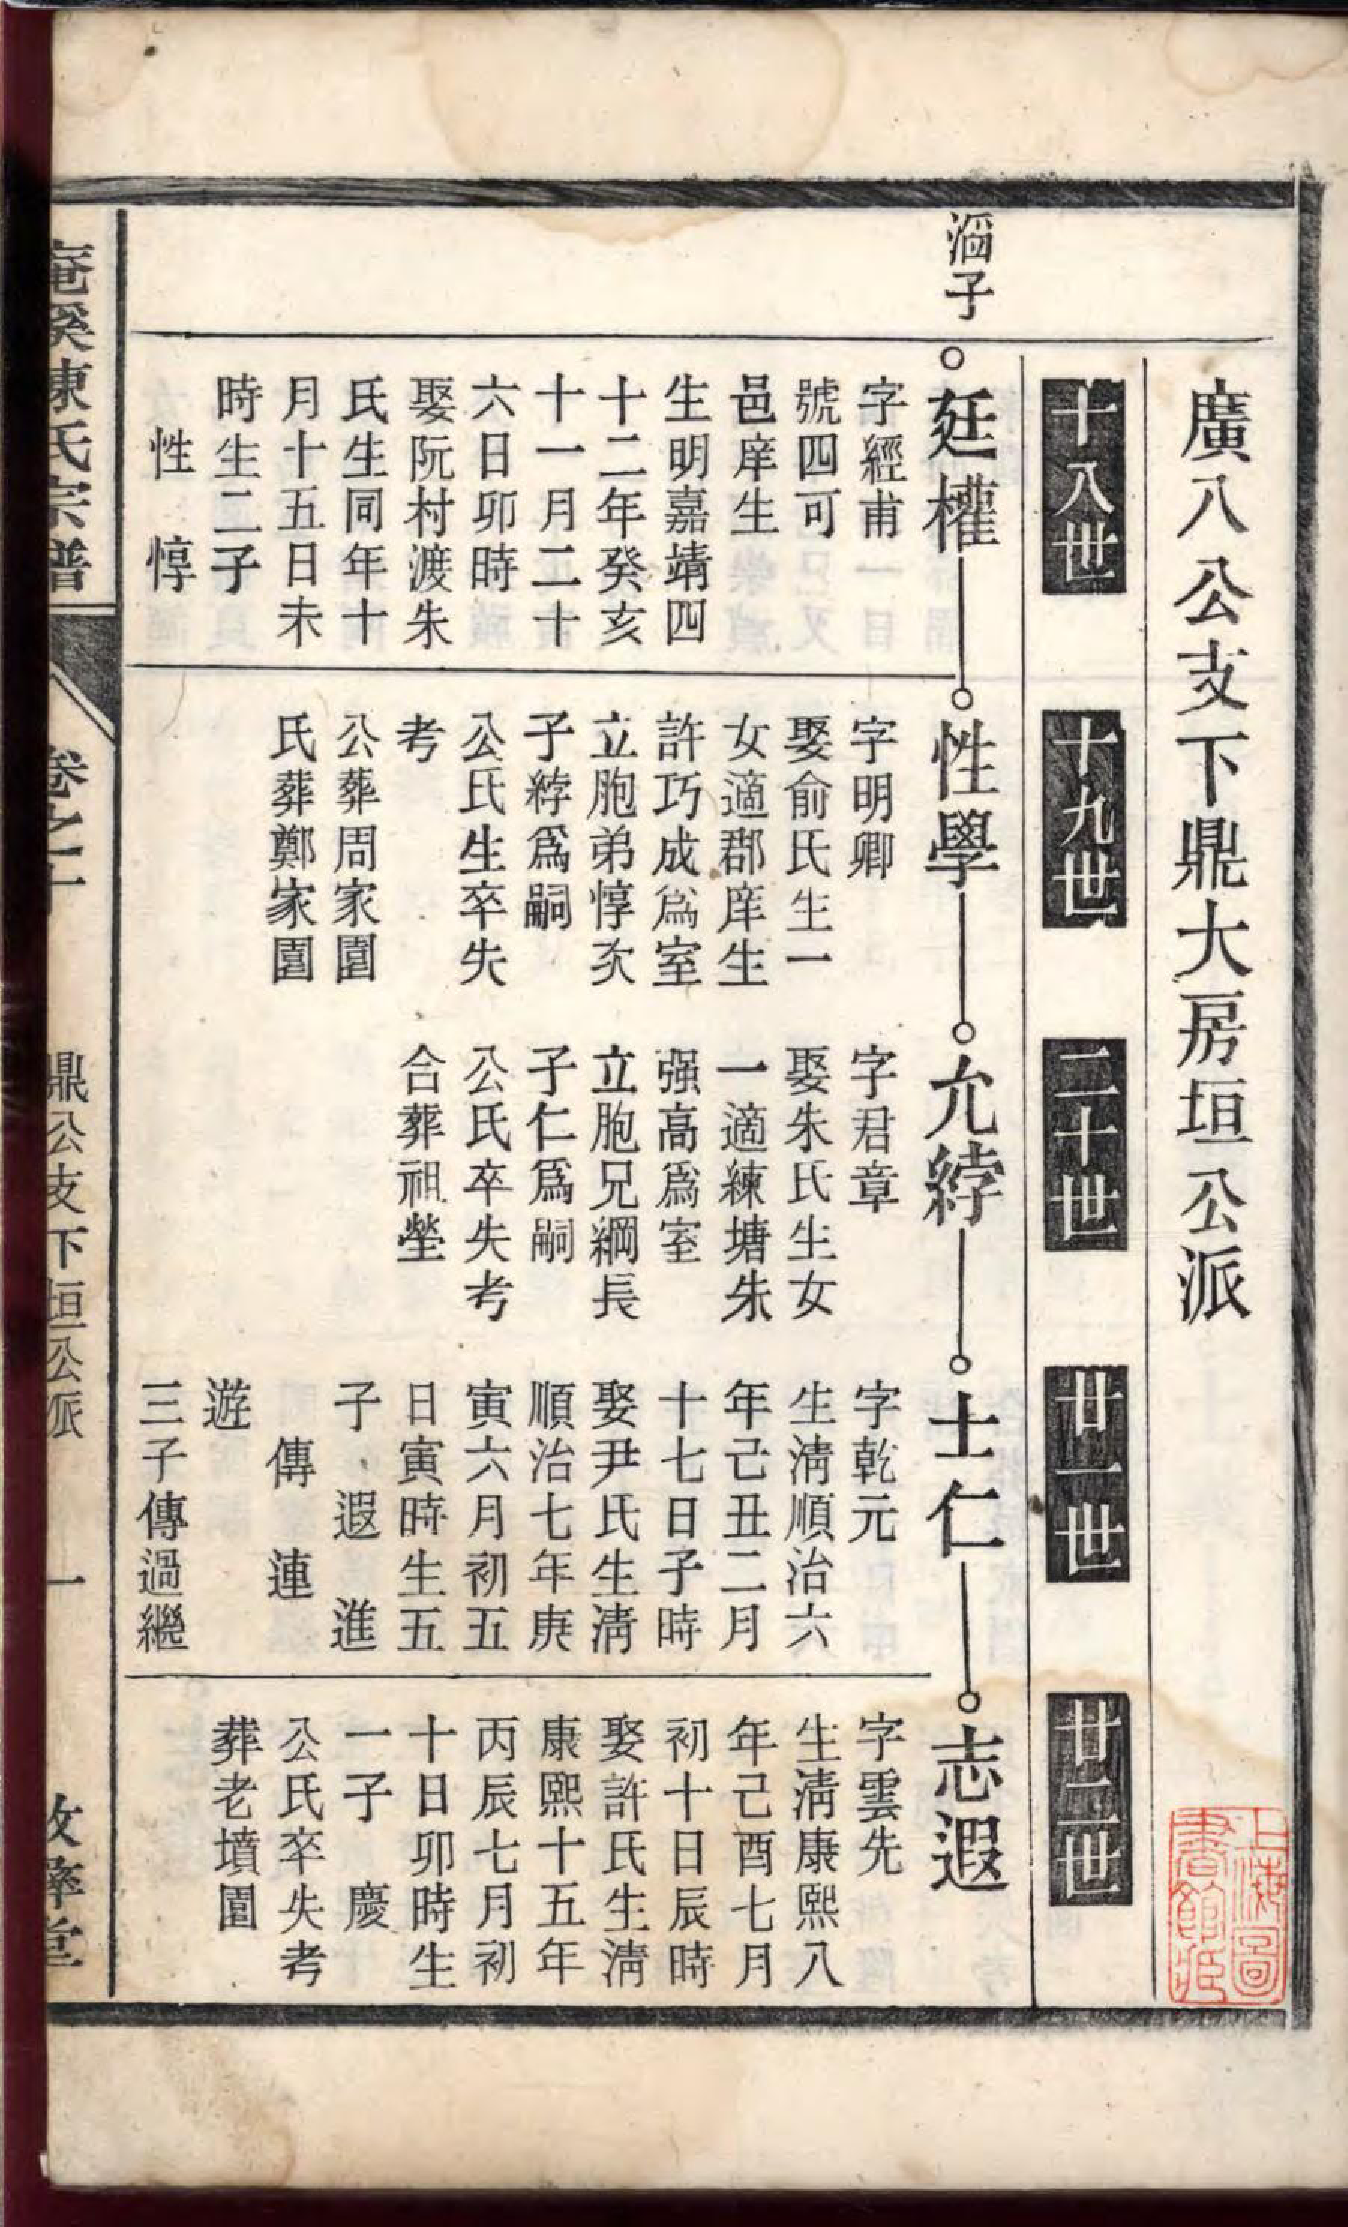 廣八公支下鼎大房垣公派
十八世
十九世
二十世
廿一世
廿二世
滔子
廷權
字經甫
號四可
邑庠生
生明嘉靖四
十二年癸亥
十一月二十
六日卯時
娶阮村渡朱
氏生同年十
月十五日未
時生二子
性 惇
性學
字明卿
娶俞氏生一
女適郡庠生
許巧成爲室
立胞弟惇次
子綍爲嗣
公氏生卒失
考
公葬周家園
氏葬鄭家園
允綍
字君章
娶朱氏生女
一適練塘朱
强高爲室
立胞兄綱長
子仁爲嗣
公氏卒失考
合葬祖塋
士仁
字乾元
生淸順治六
年己丑二月
十七日子時
娶尹氏生淸
順治七年庚
寅六月初五
日寅時生五
子 遐 進
傳 連
遊
三子傳過繼
志遐
字雲先
生淸康熙八
年己酉七月
初十日辰時
娶許氏生淸
康熙十五年
丙辰七月初
十日卯時生
一子 慶
公氏卒失考
葬老墳園
陳氏宗譜
卷之十
鼎公支下垣公派
一
上海圖
書館藏